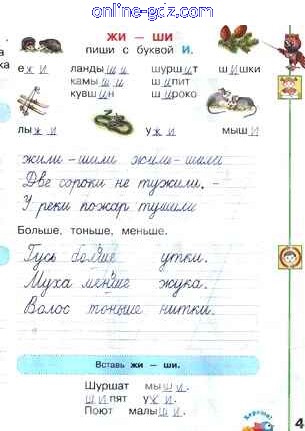 online-gdz.com
а
ка
ЖИ – ШИ
пиши с буквой И.
ежи ландыши шуршит шишки
камыши шипит
кувшин широко
лыжи ужи мыши
жили – шили жили – шили
Две сороки не тужили. –
У реки пожар тушили
Больше, тоньше, меньше.
Гусь больше утки.
Муха меньше жука.
Волос тоньше нитки.
Вставь жи – ши.
Шуршат мыши.
Шипят ужи.
Поют малыши.
Хорошо!
4